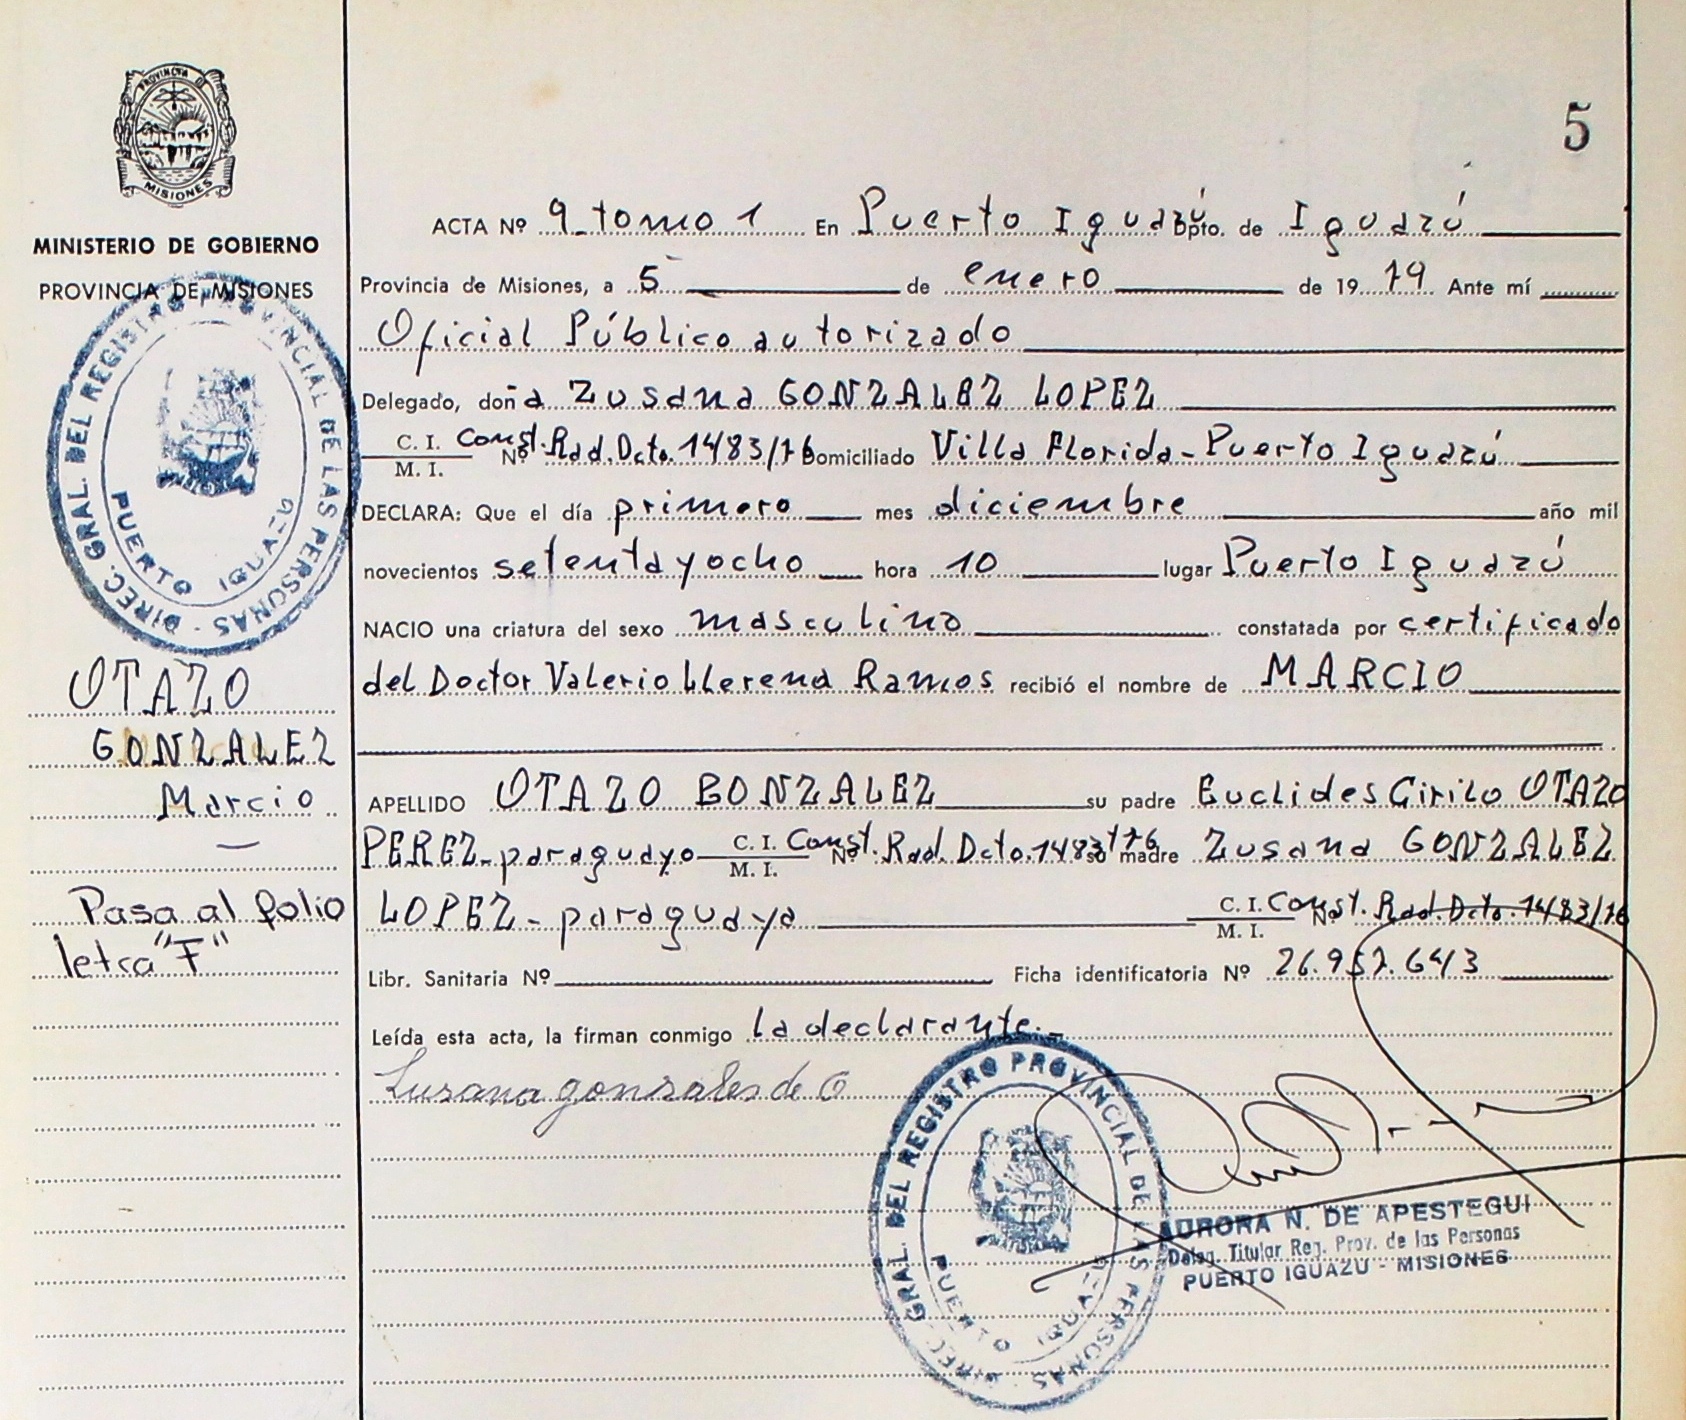 PROVINCIA DE
MISIONES
MINISTERIO DE GOBIERNO
PROVINCIA DE MISIONES
DIREC. GRAL. DEL REGISTRO PROVINCIAL DE LAS PERSONAS -
PUERTO IGUAZU
OTAZO
GONZALEZ
Marcio
—
Pasa al folio
letra "F"
5
ACTA Nº 9 tomo 1 En Puerto Iguazú Dpto. de Iguazú
Provincia de Misiones, a 5 de enero de 1979 Ante mí
Oficial Público autorizado
Delegado, doña Zusana GONZALEZ LOPEZ
C. I. M. I. Nº Const. Rad. Dcto. 1483/76 Domiciliado Villa Florida - Puerto Iguazú
DECLARA: Que el día primero mes diciembre año mil
novecientos setenta y ocho hora 10 lugar Puerto Iguazú
NACIO una criatura del sexo masculino constatada por certificado
del Doctor Valerio Llerena Ramos recibió el nombre de MARCIO
APELLIDO OTAZO GONZALEZ su padre Euclides Cirilo OTAZO
PEREZ - paraguayo C. I. M. I. Nº Const. Rad. Dcto. 1483/76 su madre Zusana GONZALEZ
LOPEZ - paraguaya C. I. M. I. Nº Const. Rad. Dcto. 1483/76
Libr. Sanitaria Nº Ficha identificatoria Nº 26.957.643
Leída esta acta, la firman conmigo la declarante.-
Lusana gonsales de O
DIREC. GRAL. DEL REGISTRO PROVINCIAL DE LAS PERSONAS -
PUERTO IGUAZU
AURORA N. DE APESTEGUI
Deleg. Titular Reg. Prov. de las Personas
PUERTO IGUAZU - MISIONES